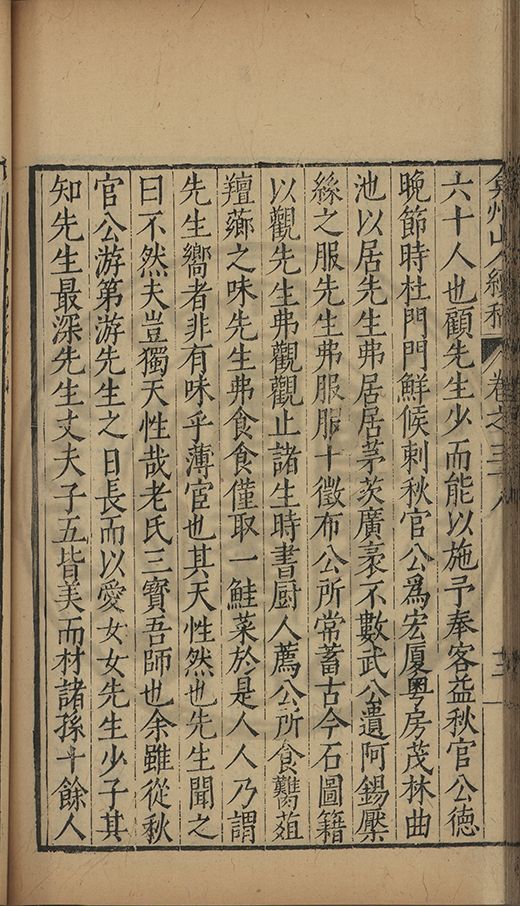 弇州山人續稿 卷之三十八 三
六十人也顧先生少而能以施予奉客益秋官公德
晚節時杜門門鮮候刺秋官公為宏厦奧房茂林曲
池以居先生弗居居茅茨廣袤不數武公遺阿錫縻
絲之服先生弗服服十㣲布公所常蓄古今石圖籍
以觀先生弗觀觀止諸生時書厨人薦公所食臇葅
羶薌之味先生弗食食僅取一鮭菜於是人人乃謂
先生嚮者非有味乎薄宦也其天性然也先生聞之
曰不然夫豈獨天性哉老氏三寳吾師也余雖從秋
官公游第游先生之日長而以愛女女先生少子其
知先生最深先生丈夫子五皆美而材諸孫十餘人